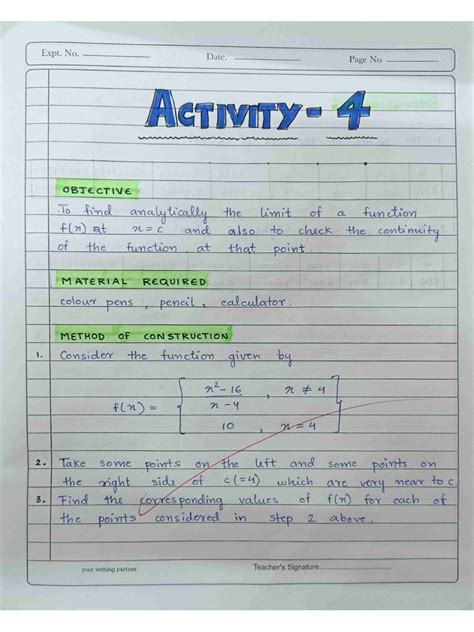 Expt. No.
Date.
Page No
ACTIVITY - 4
OBJECTIVE
To find analytically the limit of a function
f(x) at x=c and also to check the continuity
of the function at that point.
MATERIAL REQUIRED
colour pens, pencil, calculator.
METHOD OF CONSTRUCTION
1. Consider the function given by
f(x) = { x²-16 / x-4 , x ≠ 4
10 , x = 4 }
2. Take some points on the left and some points on
the right side of c(=4) which are very near to c
3. Find the corresponding values of f(x) for each of
the points considered in step 2 above.
your writing partner
Teacher's Signature